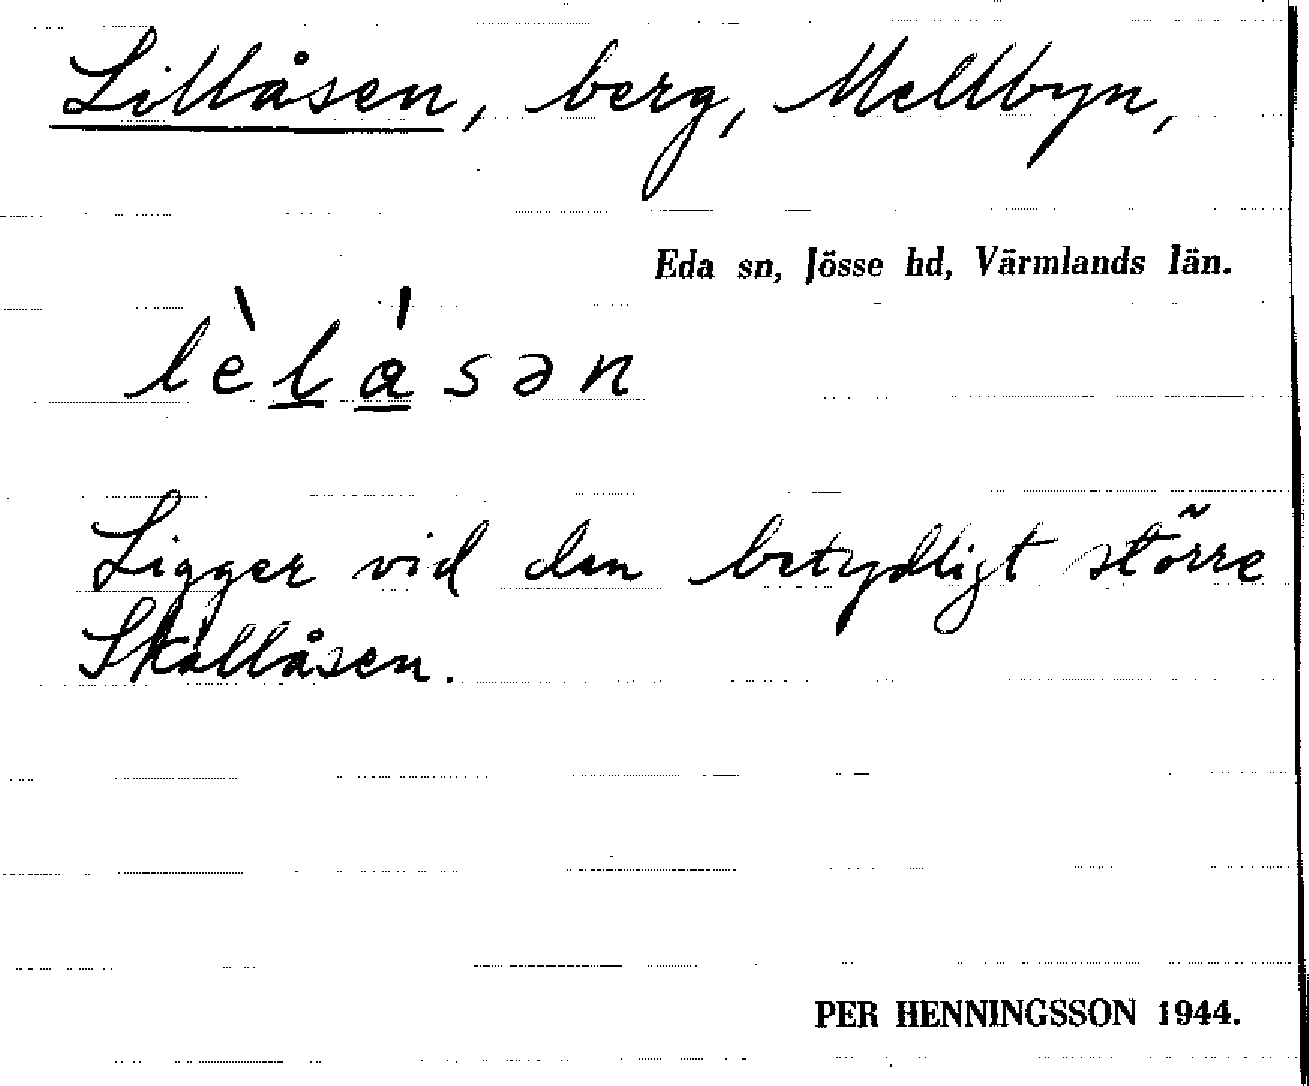 Lillåsen, berg, Mellbyn,
Eda sn, Jösse hd, Värmlands län.
lèlåsən
Ligger vid den betydligt större
Skallåsen.
PER HENNINGSSON 1944.